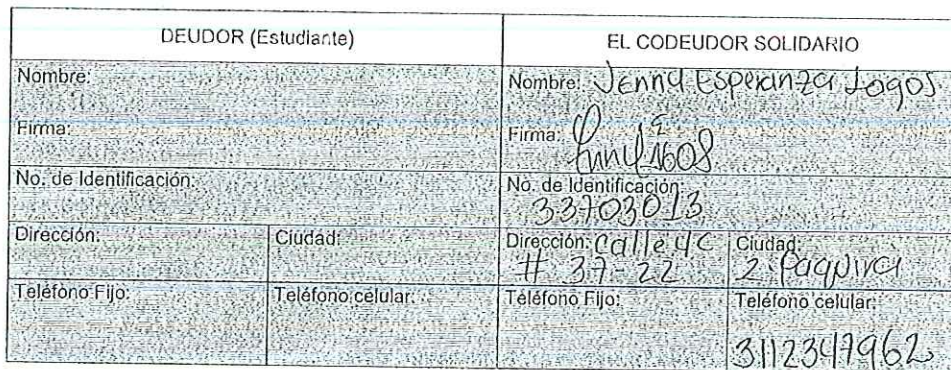 DEUDOR (Estudiante)
EL CODEUDOR SOLIDARIO
Nombre:
Nombre: Jenny Esperanza Lagos
Firma:
Firma:
No. de Identificación:
No. de Identificación:
33703013
Dirección:
Ciudad:
Dirección: Calle 4C
# 37-22
Ciudad:
Zipaquira
Teléfono Fijo:
Teléfono celular:
Teléfono Fijo:
Teléfono celular:
3112347962